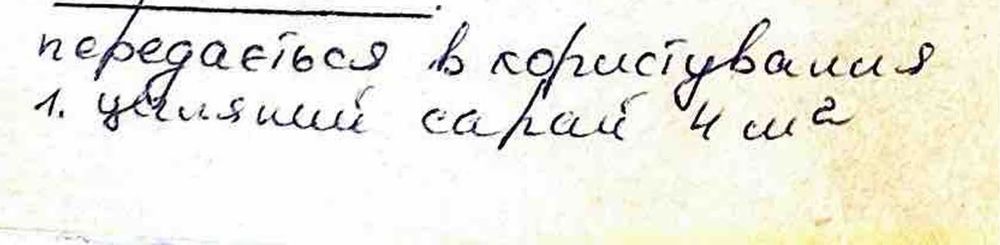 передається в користування
1. цегляний сарай 4 м²